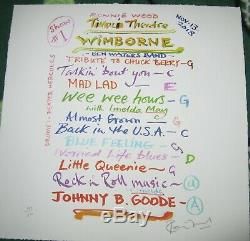 Show #1
RONNIE WOOD
Tivoli Theatre
WIMBORNE
Nov. 13 2018
BEN WATERS BAND
TRIBUTE TO CHUCK BERRY - G
Talkin' bout you - C
MAD LAD - E
Wee wee hours - G
with Imelda May
Almost Grown - C
Back in the U.S.A. - C
BLUE FEELING - C
Worried Life blues - D
Little Queenie - G
Rock n Roll music - A
Imelda
JOHNNY B. GOODE - A
DRUMS - DEXTER HERCULES